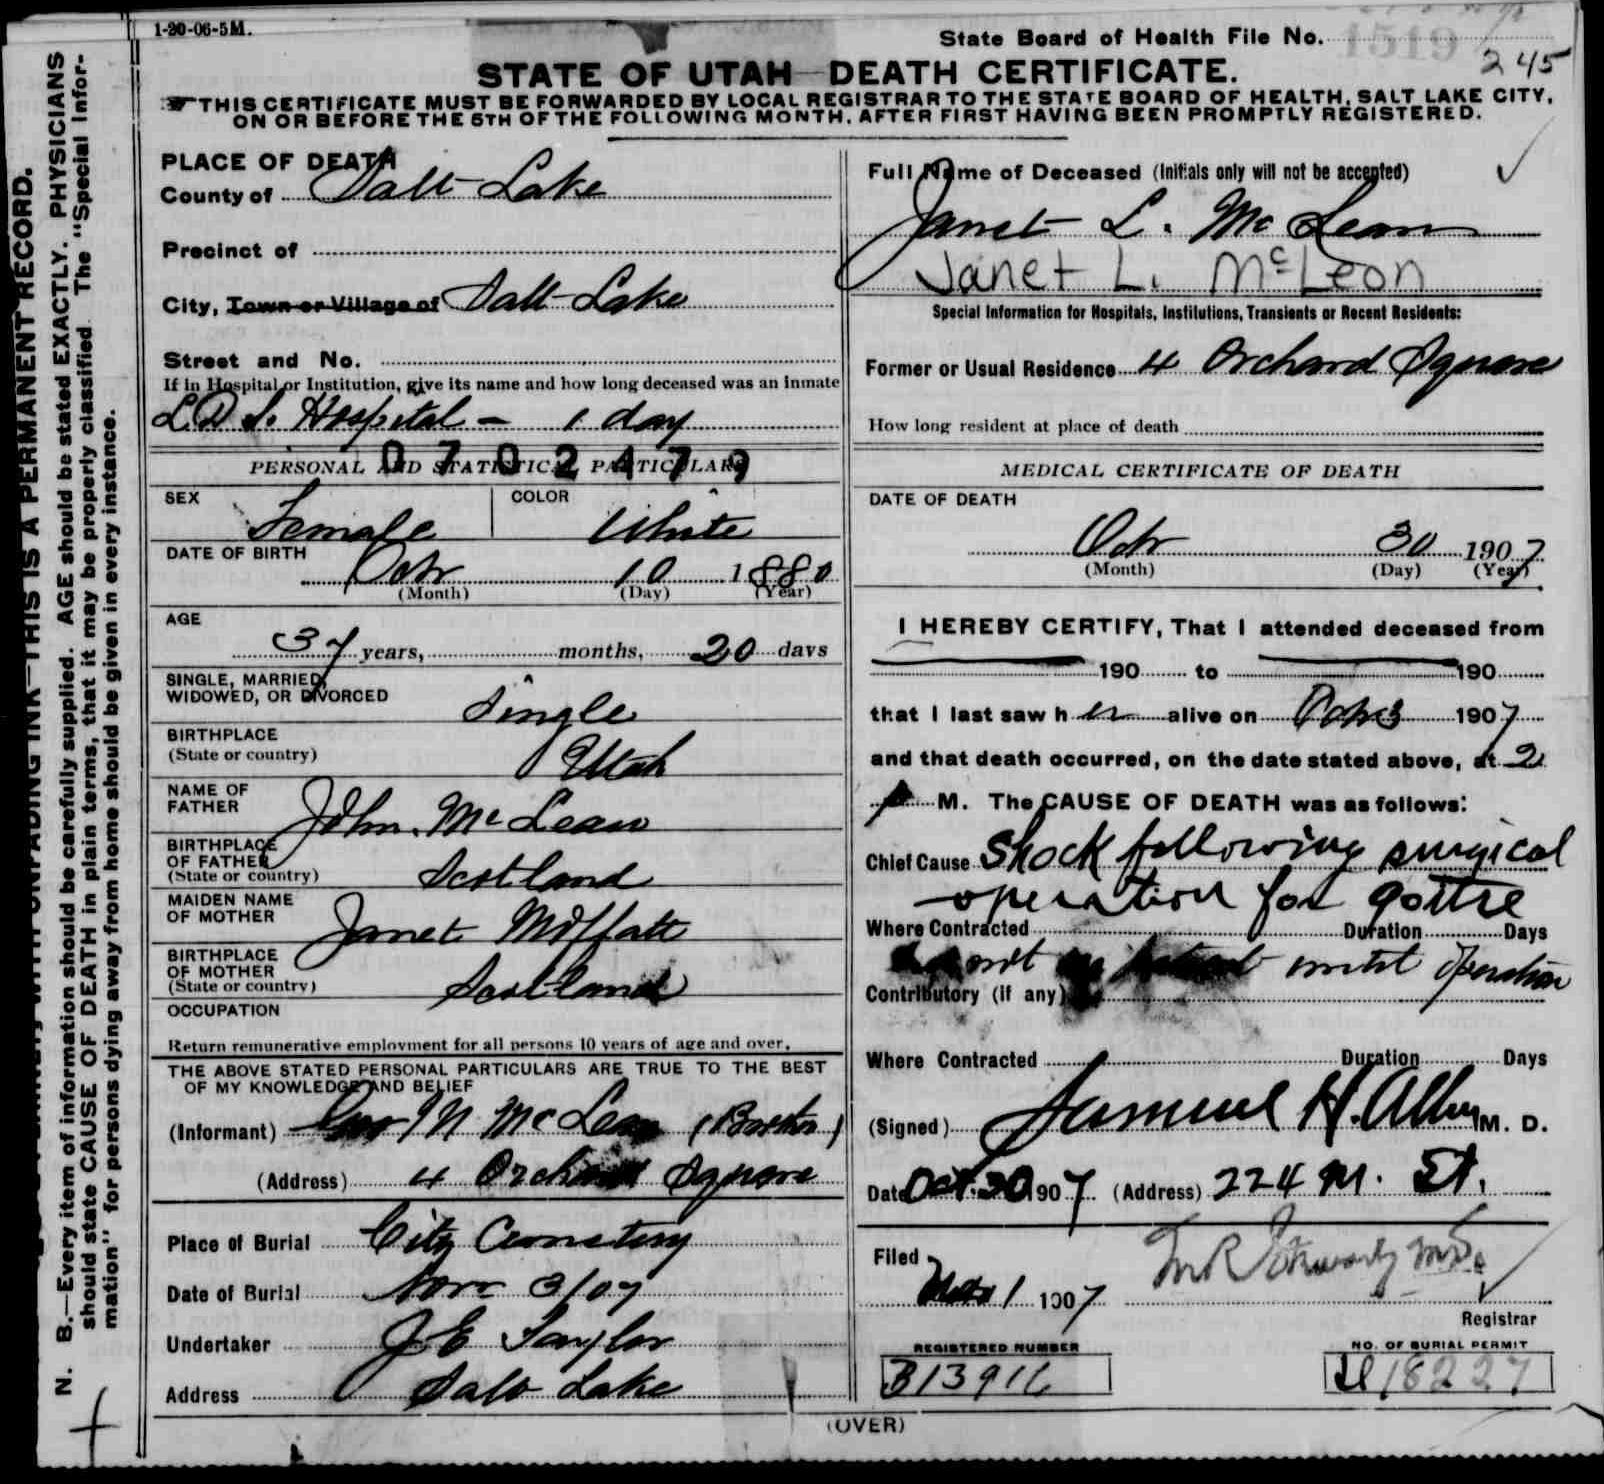 1-20-06-5M.
State Board of Health File No. 1519
245
STATE OF UTAH—DEATH CERTIFICATE.
THIS CERTIFICATE MUST BE FORWARDED BY LOCAL REGISTRAR TO THE STATE BOARD OF HEALTH, SALT LAKE CITY,
ON OR BEFORE THE 5TH OF THE FOLLOWING MONTH, AFTER FIRST HAVING BEEN PROMPTLY REGISTERED.
PLACE OF DEATH
County of Salt Lake
Precinct of
City, Town or Village of Salt Lake
Street and No.
If in Hospital or Institution, give its name and how long deceased was an inmate
L.D.S. Hospital — 1 day
0702479
PERSONAL AND STATISTICAL PARTICULARS
SEX Female COLOR White
DATE OF BIRTH
Oct 10 1880
(Month) (Day) (Year)
AGE
37 years, months, 20 days
SINGLE, MARRIED,
WIDOWED, OR DIVORCED Single
BIRTHPLACE
(State or country) Utah
NAME OF
FATHER John McLean
BIRTHPLACE
OF FATHER
(State or country) Scotland
MAIDEN NAME
OF MOTHER Janet Moffatt
BIRTHPLACE
OF MOTHER
(State or country) Scotland
OCCUPATION
Return remunerative employment for all persons 10 years of age and over.
THE ABOVE STATED PERSONAL PARTICULARS ARE TRUE TO THE BEST
OF MY KNOWLEDGE AND BELIEF
(Informant) M McLean (Brother)
(Address) 4 Orchard Square
Place of Burial City Cemetery
Date of Burial Nov 3/07
Undertaker J E Taylor
Address Salt Lake
Full Name of Deceased (Initials only will not be accepted)
Janet L. McLean
Janet L. McLeon
Special Information for Hospitals, Institutions, Transients or Recent Residents:
Former or Usual Residence 4 Orchard Square
How long resident at place of death
MEDICAL CERTIFICATE OF DEATH
DATE OF DEATH
Oct 30 1907
(Month) (Day) (Year)
I HEREBY CERTIFY, That I attended deceased from
190 to 190
that I last saw her alive on 1907
and that death occurred, on the date stated above, at 2
P M. The CAUSE OF DEATH was as follows:
Chief Cause Shock following surgical
operation for goitre
Where Contracted Duration Days
not until operation
Contributory (if any)
Where Contracted Duration Days
(Signed) Samuel H. Allen M. D.
Date Oct. 30 1907 (Address) 224 M. St.
Filed
1 1907
Registrar
REGISTERED NUMBER
B13916
NO. OF BURIAL PERMIT
18227
(OVER)
N. B.—Every item of information should be carefully supplied. AGE should be stated EXACTLY. PHYSICIANS
should state CAUSE OF DEATH in plain terms, that it may be properly classified. The "Special Infor-
mation" for persons dying away from home should be given in every instance.
WITH UNFADING INK—THIS IS A PERMANENT RECORD.